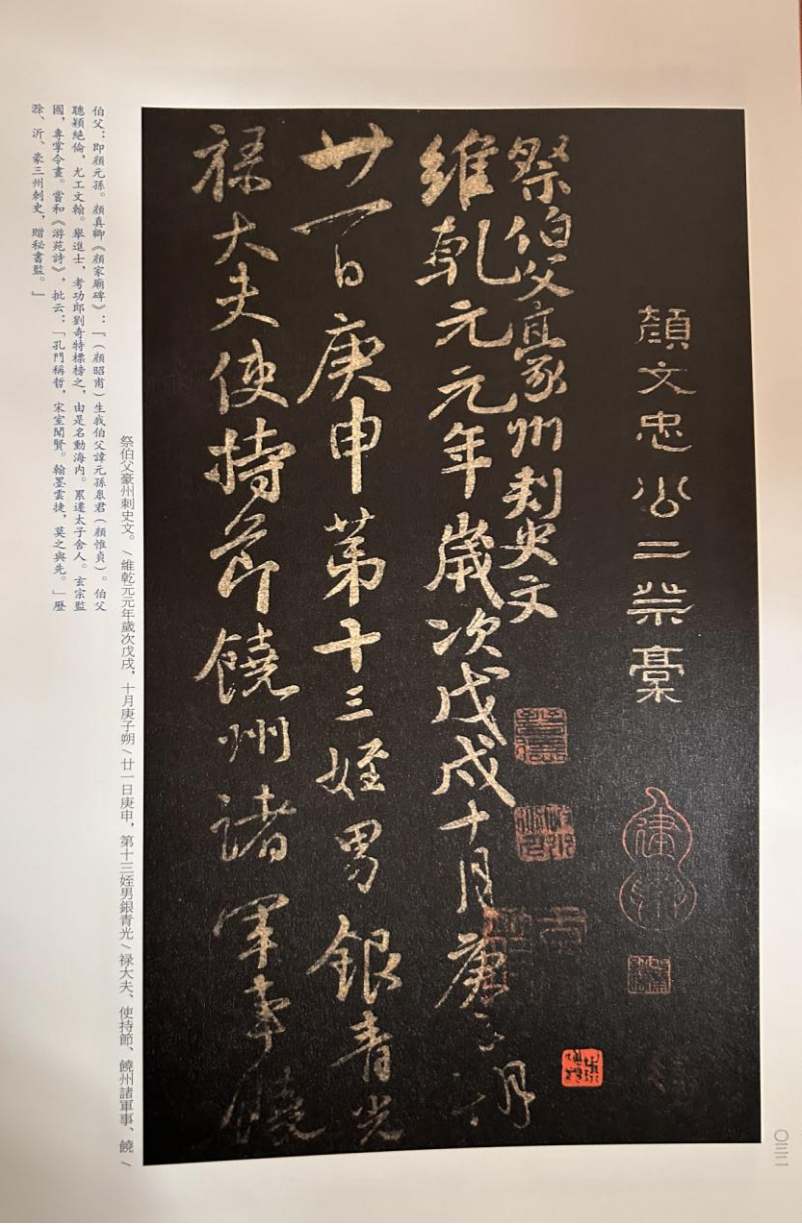 顏文忠公二祭稾
祭伯父豪州刺史文
維乾元元年歲次戊戌十月庚子朔
廿一日庚申第十三姪男銀青光
祿大夫使持節饒州諸軍事饒
祭伯父豪州刺史文。/維乾元元年歲次戊戌，十月庚子朔/廿一日庚申，第十三姪男銀青光/祿大夫、使持節、饒州諸軍事、饒/
伯父：即顏元孫。顏真卿《顏家廟碑》：「（顏昭甫）生我伯父諱元孫泉君（顏惟貞）。伯父
聰穎絕倫，尤工文翰。舉進士，考功郎劉奇特標榜之，由是名動海內。累遷太子舍人。玄宗監
國，專掌令畫。嘗和《游苑詩》，批云：「孔門稱哲，宋室聞賢。翰墨雲捷，莫之與先。」歷
滁、沂、豪三州刺史，贈秘書監。」